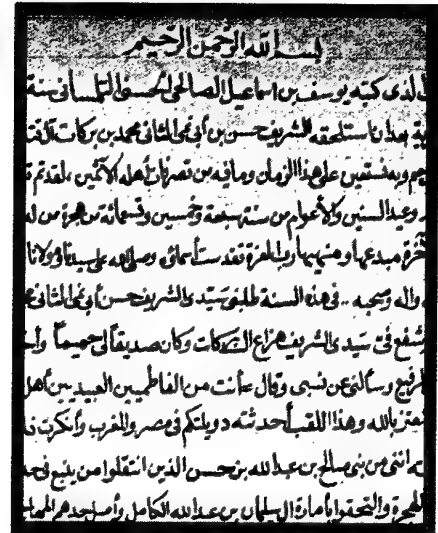 بسم الله الرحمن الرحيم
الذى كتبه يوسف بن اسماعيل الصالحى الحسنى التلمسانى سنة
بعد ان استلحقه الشريف حسن بن أبى نمى الثانى محمد بن بركات
على هذا الزمان ومافيه من تصرفات أهله الآثمين ، لقد تم
وعيد السنين والأعوام من سنة سبعة وخمسين وتسعمائة من هجرة من
مبدعها ومنهيها ورب العزة تقدست أسمائى وصلى الله على سيدنا ومولانا
واله وصحبه .. فى هذه السنة طلبنى سيدى الشريف حسن أبى نمى الثانى
شفع فى سيدى الشريف هزاع البركات وكان صديقاً لى حميماً
وسألنى عن نسبى وقال أنت من الفاطميين العبيديين أهل
بالله وهذا اللقب أحدثته دويلتكم فى مصر والمغرب وأنكرت
اننى من بنى صالح بن عبدالله بن حسن الذين انتقلوا من ينبع فى
والتحقوا بأمارة ال سلمان بن عبدالله الكامل وأصل جدهم